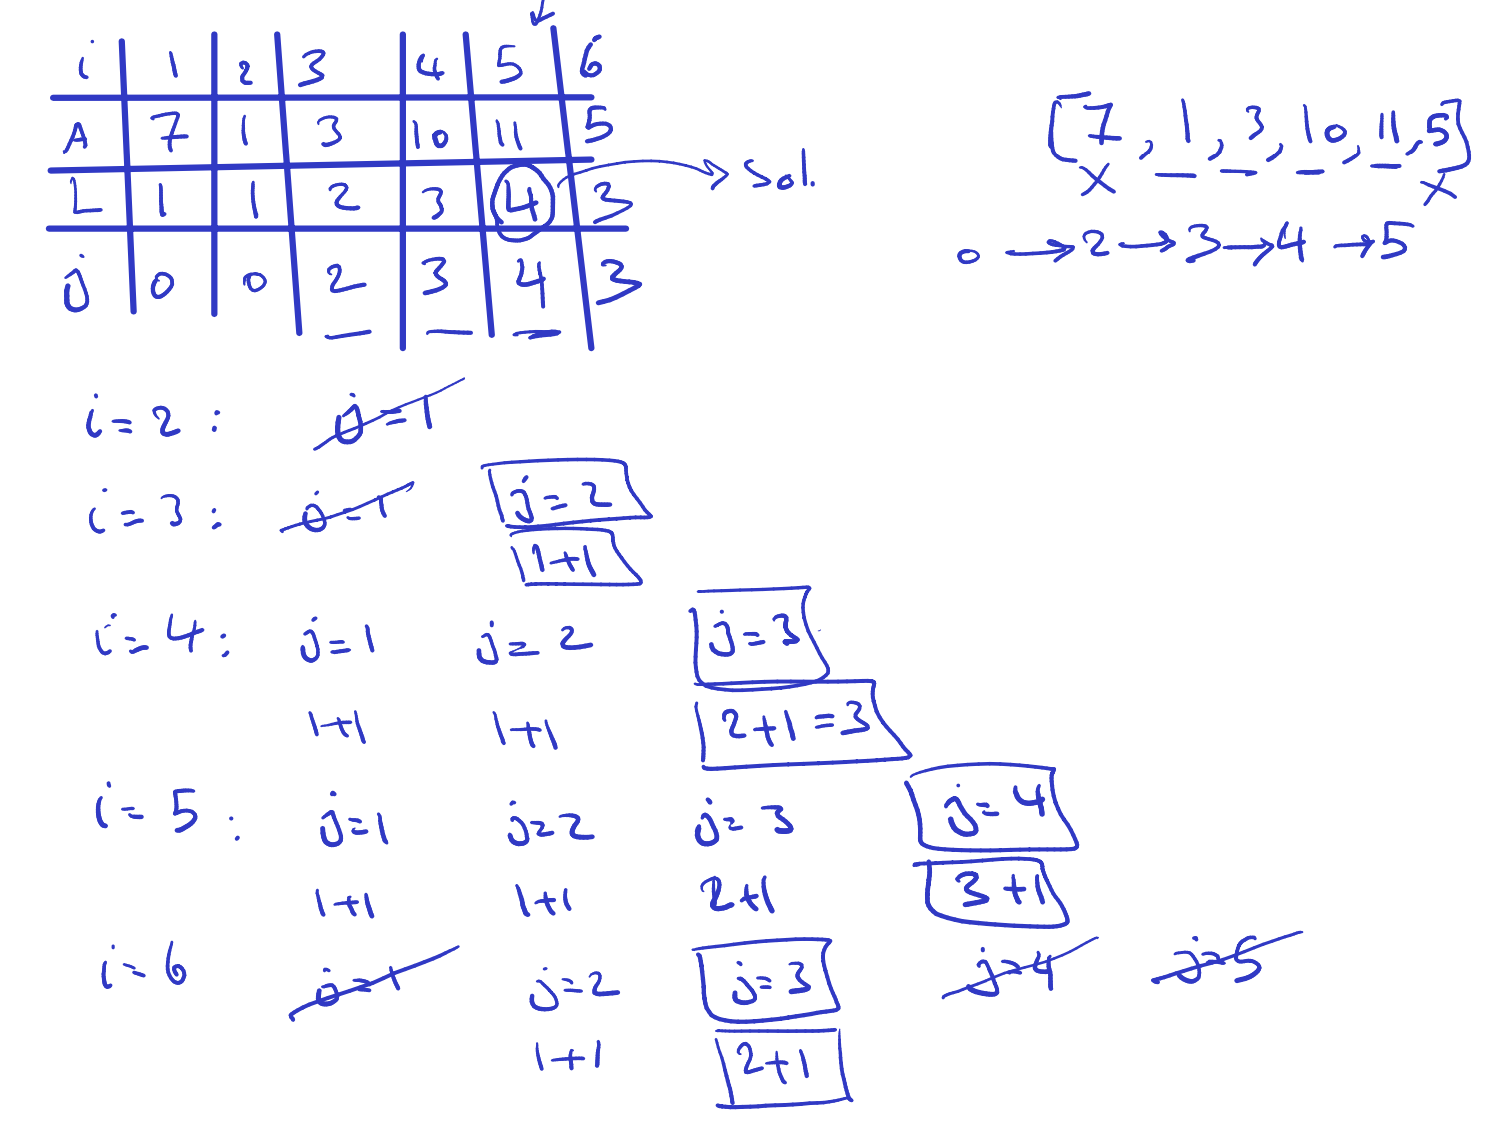 i 1 2 3 4 5 6
A 7 1 3 10 11 5
L 1 1 2 3 4 3 → Sol.
j 0 0 2 3 4 3
[7, 1, 3, 10, 11, 5]
x x
0 → 2 → 3 → 4 → 5
i = 2 : j = 1
i = 3 : j = 1 j = 2
1+1
i = 4 : j = 1 j = 2 j = 3
1+1 1+1 2+1 = 3
i = 5 : j = 1 j = 2 j = 3 j = 4
1+1 1+1 2+1 3+1
i = 6 j = 1 j = 2 j = 3 j = 4 j = 5
1+1 2+1